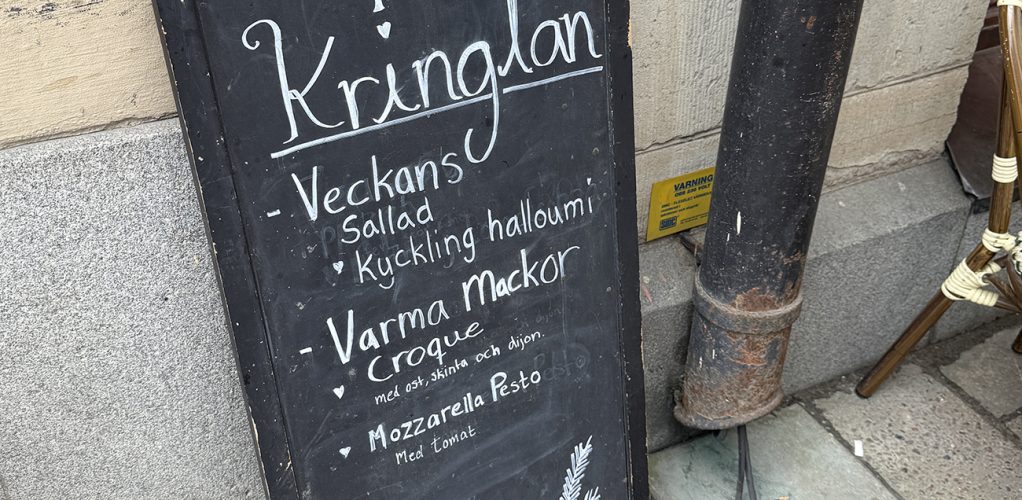 Kringlan
- Veckans
Sallad
Kyckling halloumi
- Varma Mackor
Croque
med ost, skinka och dijon.
Mozzarella Pesto
Med tomat
VARNING
OBS 230 VOLT